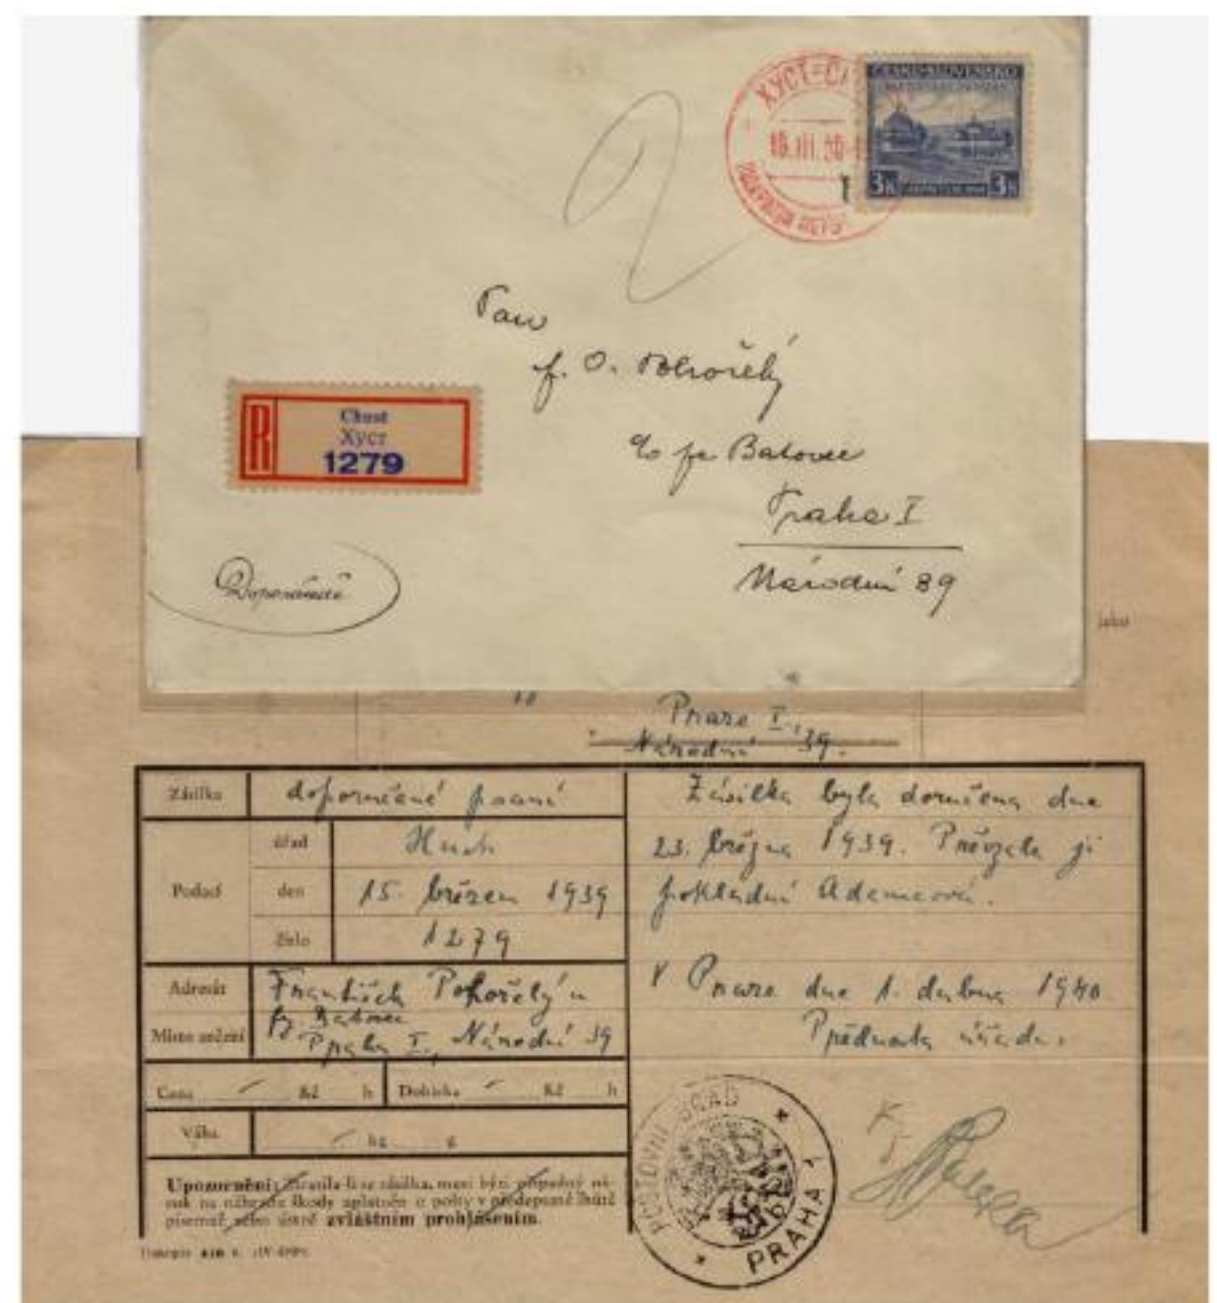 ХУСТ=
15.III.39
ČESKO-SLOVENSKO
3K 3K
Pan
F. O. Pohořelý
c/o fa Batovec
Praha I
Národní 39
R
Chust
Хуст
1279
Doporučeně
jako
Praze I.,
Národní 39.
Zásilka doporučené psaní
Podací
úřad Hust
den 15. březen 1939
číslo 1279
Adresát František Pohořelý u
Místo určení fy Batovec
Praha I., Národní 39
Cena Kč h Dobírka Kč h
Váha kg g
Zásilka byla doručena dne
23. března 1939. Převzala ji
pokladní Adamcová.
V Praze dne 1. dubna 1940
Přednosta úřadu:
Upozornění: Ztratila-li se zásilka, musí býti případný ná-
rok na náhradu škody uplatněn u pošty v předepsané lhůtě
písemně nebo ústně zvláštním prohlášením.
POŠTOVNÍ ÚŘAD
PRAHA 1